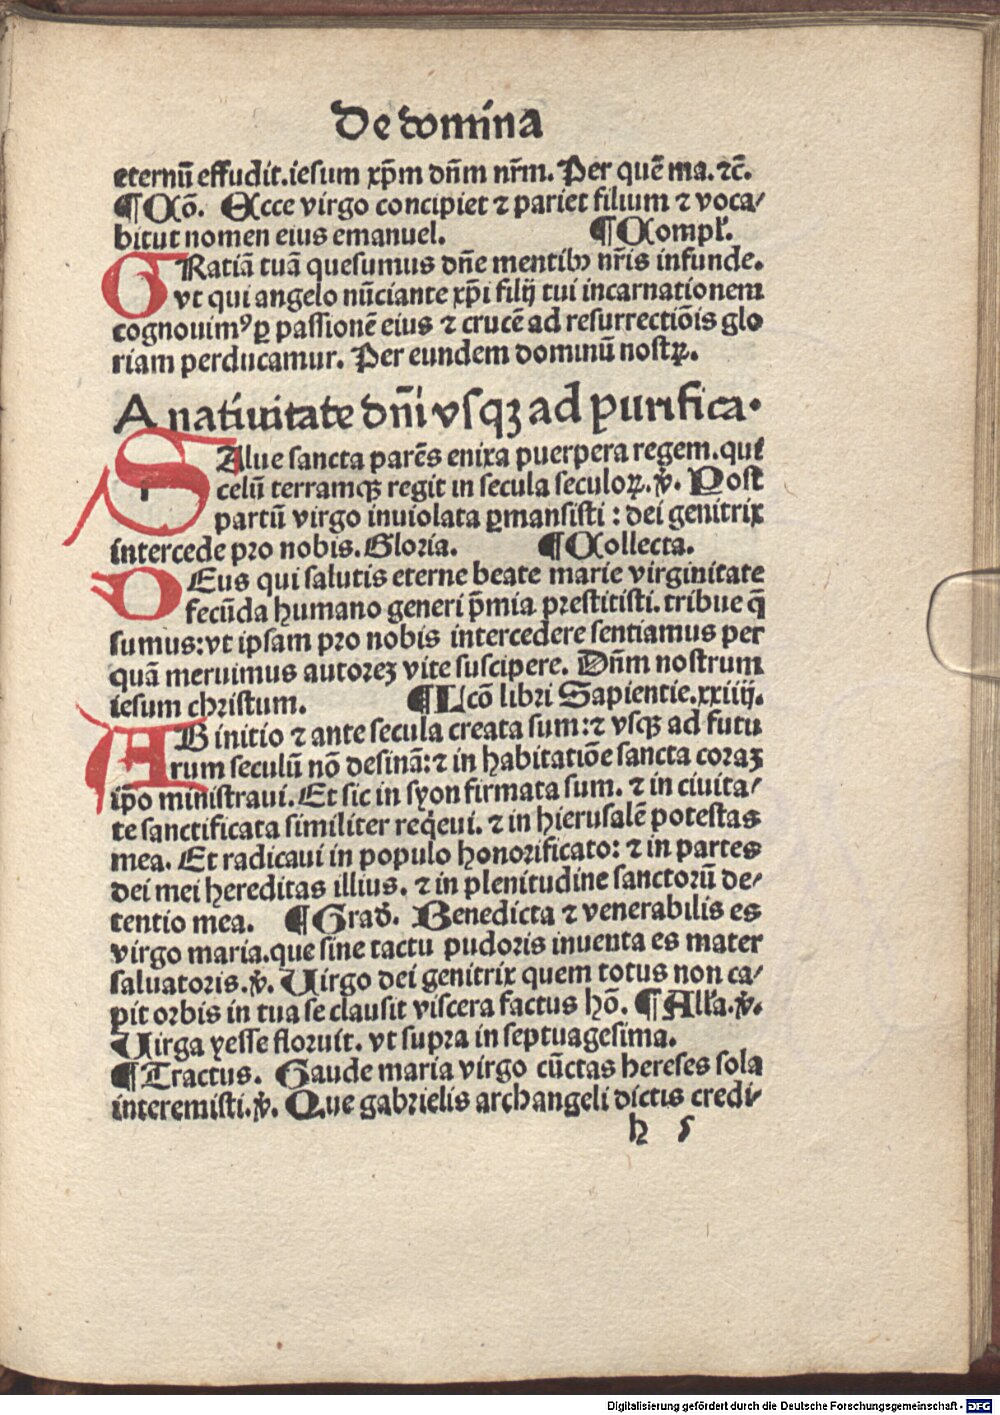 De domina
eternū effudit.iesum xp̄m dn̄m nr̄m. Per quē ma. ⁊c̄.
¶Cō. Ecce virgo concipiet ⁊ pariet filium ⁊ voca/
bitut nomen eius emanuel. ¶Compl̄.
GRatiā tuā quesumus dn̄e mentibꝰ nr̄is infunde.
vt qui angelo nūciante xp̄i filij tui incarnationem
cognouimꝰ ꝑ passionē eius ⁊ crucē ad resurrectiōis glo
riam perducamur. Per eundem dominū nostꝝ.
A natiuitate dn̄i vsqꝫ ad purifica.
SAlue sancta parēs enixa puerpera regem.qui
celū terramqꝫ regit in secula seculoꝝ. ℣. Post
partū virgo inuiolata ꝑmansisti : dei genitrix
intercede pro nobis. Gloria. ¶Collecta.
DEus qui salutis eterne beate marie virginitate
fecūda humano generi p̄mia prestitisti. tribue q̄
sumus: vt ipsam pro nobis intercedere sentiamus per
quā meruimus autoreꝫ vite suscipere. Dn̄m nostrum
iesum christum. ¶Lcō libri Sapientie.xxiiij.
AB initio ⁊ ante secula creata sum: ⁊ vsqꝫ ad futu
rum seculū nō desinā: ⁊ in habitatiōe sancta coraꝫ
ip̄o ministraui. Et sic in syon firmata sum. ⁊ in ciuita/
te sanctificata similiter req̇eui. ⁊ in hierusalē potestas
mea. Et radicaui in populo honorificato: ⁊ in partes
dei mei hereditas illius. ⁊ in plenitudine sanctorū de/
tentio mea. ¶Grad̄. Benedicta ⁊ venerabilis es
virgo maria.que sine tactu pudoris inuenta es mater
saluatoris. ℣. Uirgo dei genitrix quem totus non ca/
pit orbis in tua se clausit viscera factus hō. ¶All̄a. ℣.
Uirga yesse floruit. vt supra in septuagesima.
¶Tractus. Gaude maria virgo cūctas hereses sola
interemisti. ℣. Que gabrielis archangeli dictis credi/
h 5
Digitalisierung gefördert durch die Deutsche Forschungsgemeinschaft - DFG